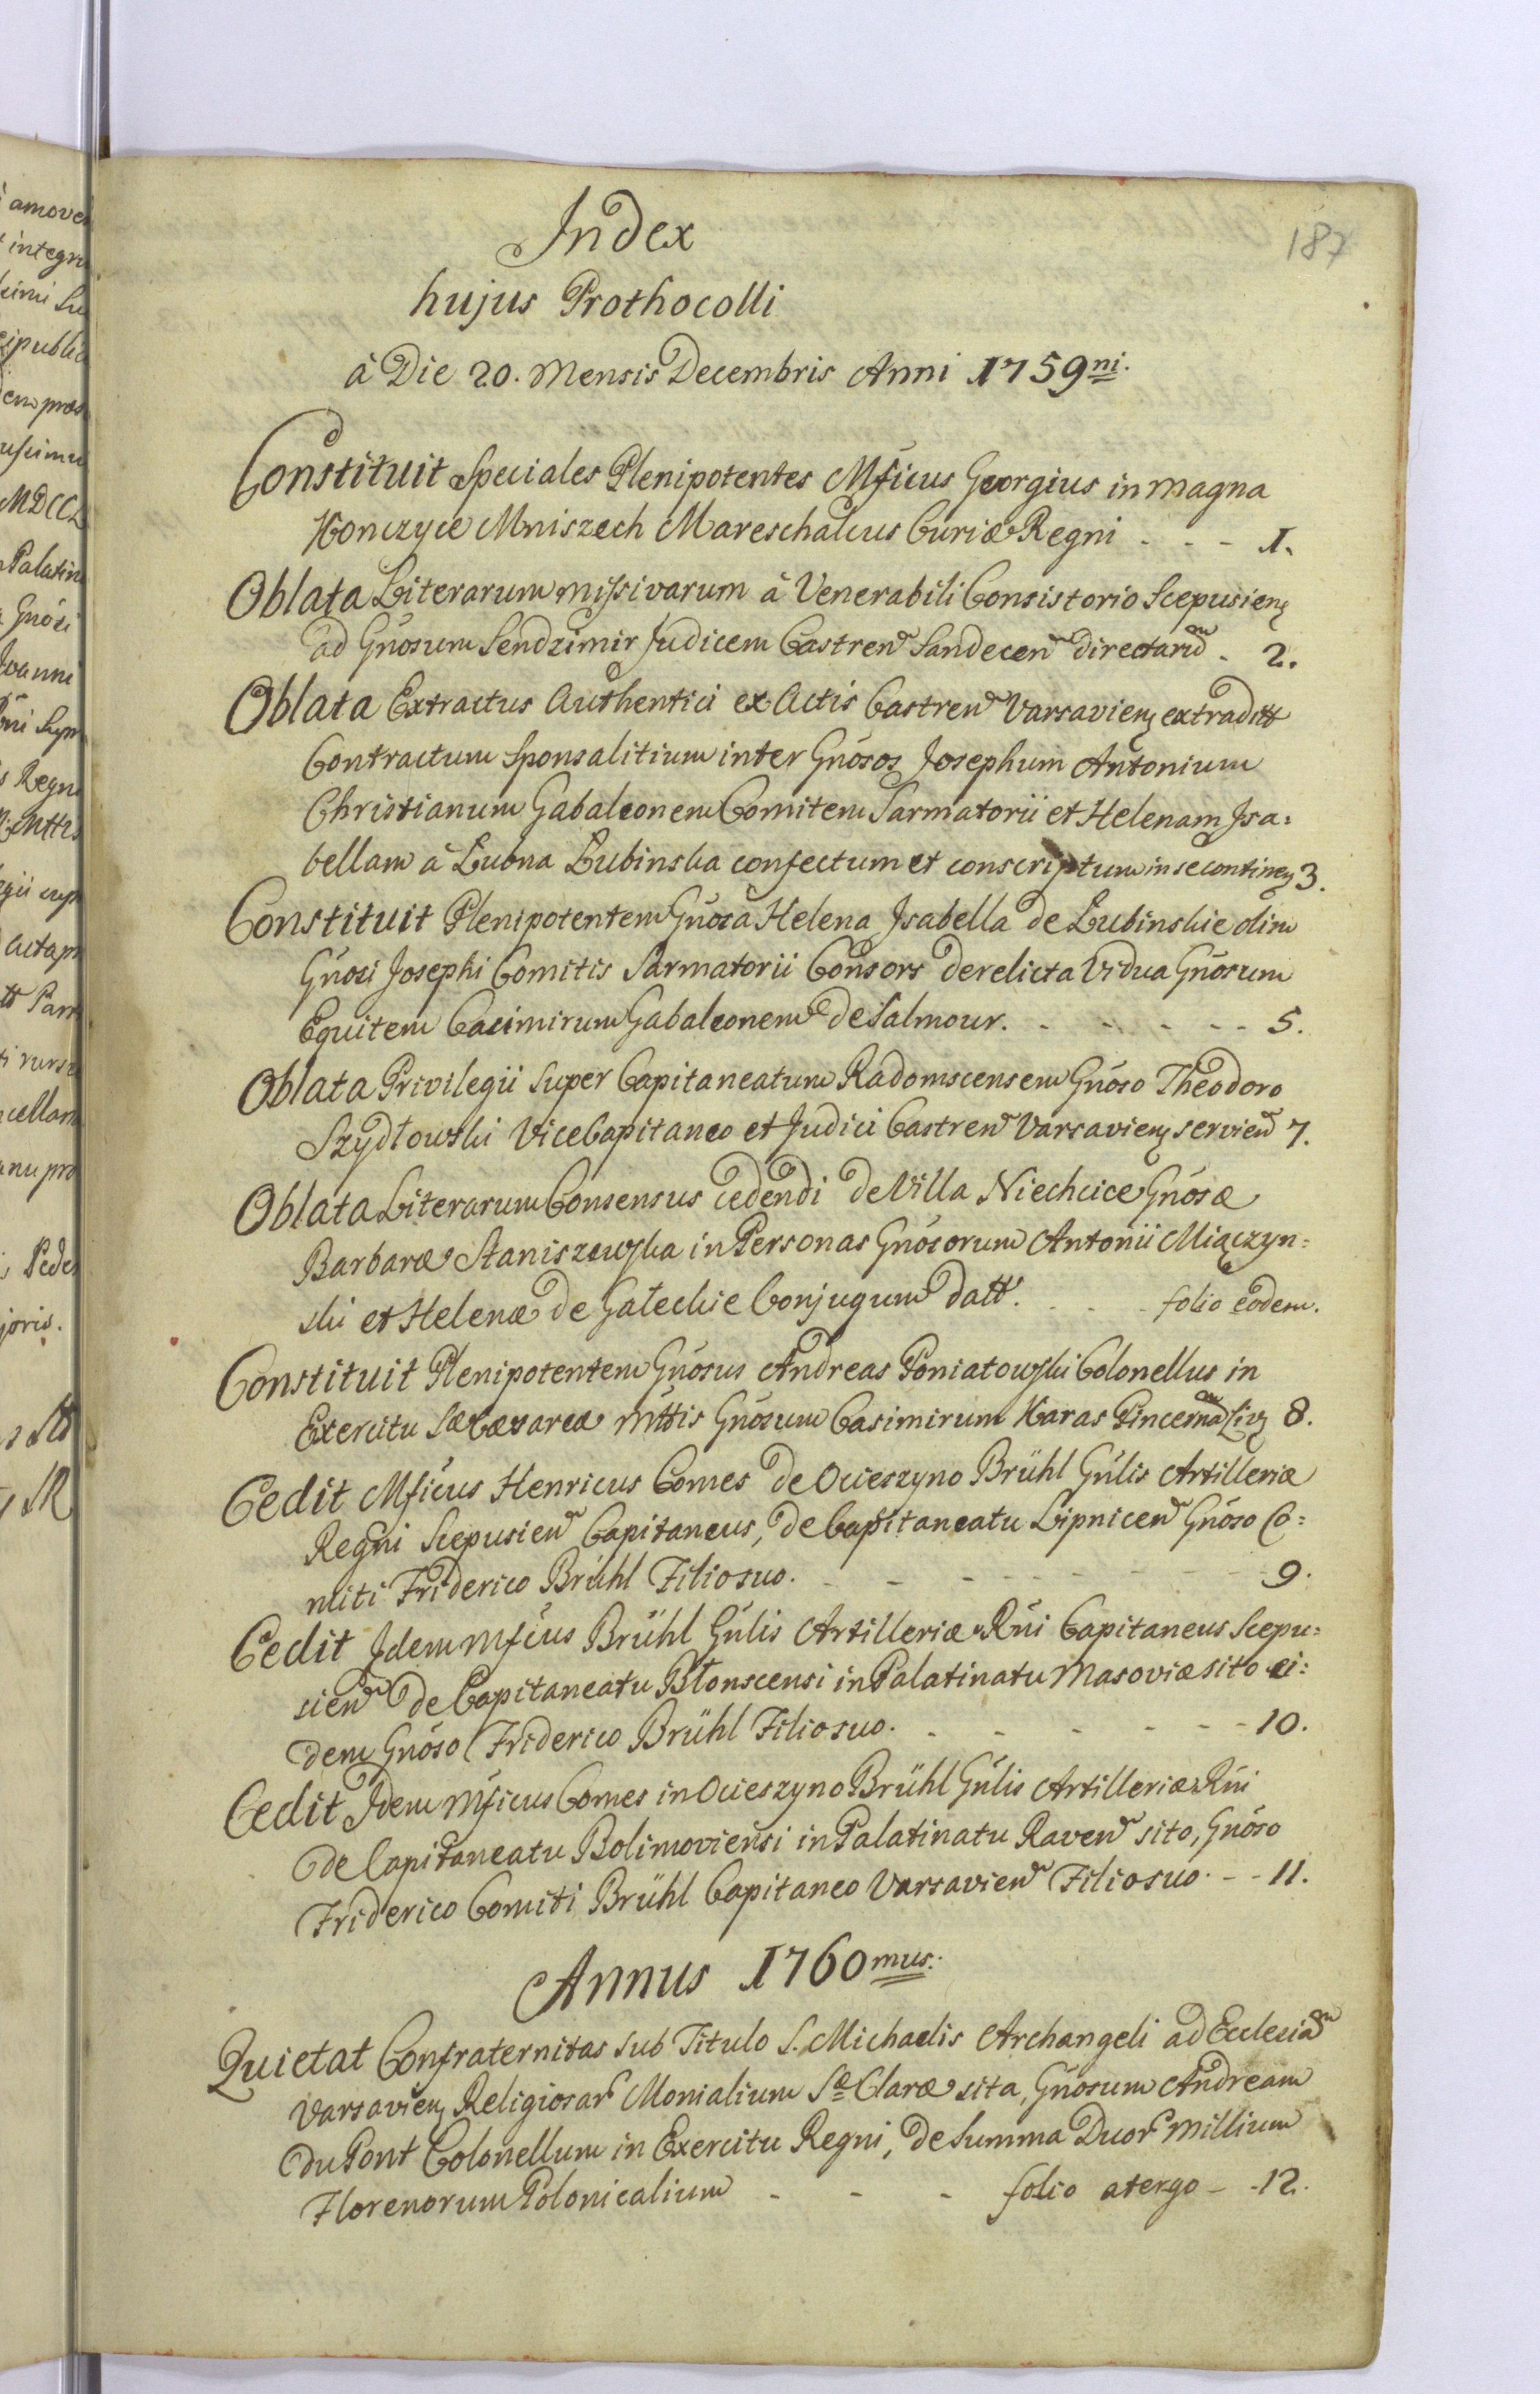 187
Index
hujus Prothocolli
à Die 20. Mensis Decembris Anni 1759ni.
Constituit Speciales Plenipotentes Mficus Georgius in magna
Konczyce Mniszech Mareschalcus Curiæ Regni - - - 1.
Oblata Literarum missivarum à Venerabili Consistorio Scepusien
ad Gnosum Sendzimir Judicem Castren Sandecen directarum - 2.
Oblata Extractus Authentici ex Actis Castren Varsavien extraditt
Contractum Sponsalitium inter Gnosos Josephum Antonium
Christianum Gabaleonem Comitem Sarmatorii et Helenam Isa=
bellam à Lubna Lubinska confectum et conscriptum in se continen 3.
Constituit Plenipotentem Gnosa Helena Isabella de Lubinskie olim
Gnosi Josephi Comitis Sarmatorii Consors derelicta Vidua Gnosum
Equitem Casimirum Gabaleonem de Salmour. - - - - - 5.
Oblata Privilegii super Capitaneatum Radomscensem Gnoso Theodoro
Szydłowski ViceCapitaneo et Judici Castren Varsavien servien 7.
Oblata Literarum Consensus cedendi de Villa Niechcice Gnosæ
Barbaræ Staniszewska in Personas Gnosorum Antonii Miączyn=
ski et Helenæ de Gałeckie Conjugum datt. - - - folio eodem.
Constituit Plenipotentem Gnosus Andreas Poniatowski Colonellus in
Exercitu Sæ Cæsareæ Mttis Gnosum Casimirum Karas Pincernam Liv 8.
Cedit Mficus Henricus Comes de Ocieszyno Brühl Gnlis Artilleriæ
Regni Scepusien Capitaneus, de Capitaneatu Lipnicen Gnoso Co=
miti Friderico Brühl Filio suo. - - - - - - - 9.
Cedit Idem Mficus Brühl Gnlis Artilleriæ Rni Capitaneus Scepu=
sien de Capitaneatu Błonscensi in Palatinatu Masoviæ sito ei=
dem Gnoso Friderico Brühl Filio suo. - - - - - - 10.
Cedit Idem Mficus Comes in Ocieszyno Brühl Gnlis Artilleriæ Rni
de Capitaneatu Bolimoviensi in Palatinatu Raven sito, Gnoso
Friderico Comiti Brühl Capitaneo Varsavien Filio suo. - - 11.
Annus 1760mus.
Quietat Confraternitas sub Titulo S. Michaelis Archangeli ad Ecclesiam
Varsavien Religiosar Monialium Sæ Claræ sita, Gnosum Andream
du Pont Colonellum in Exercitu Regni, de Summa Duor millium
Florenorum Polonicalium - - - folio atergo - - 12.